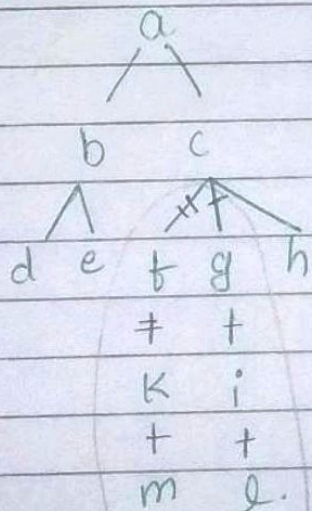 a
b c
d e f g h
k i
m l.